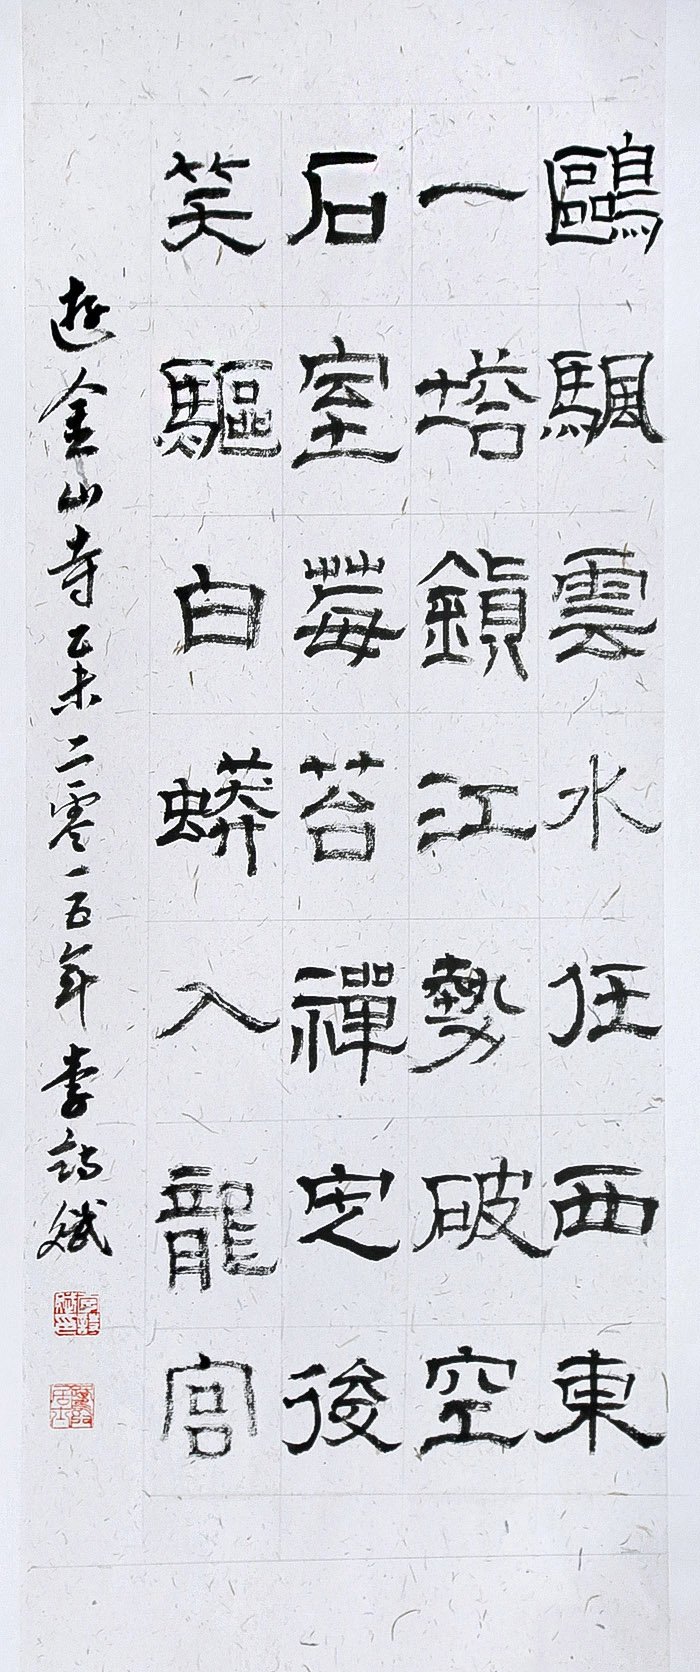 鷗颿雲水任西東
一塔鎮江勢破空
石室莓苔禪定後
笑驅白蟒入龍宮
遊金山寺乙未二零一五年李